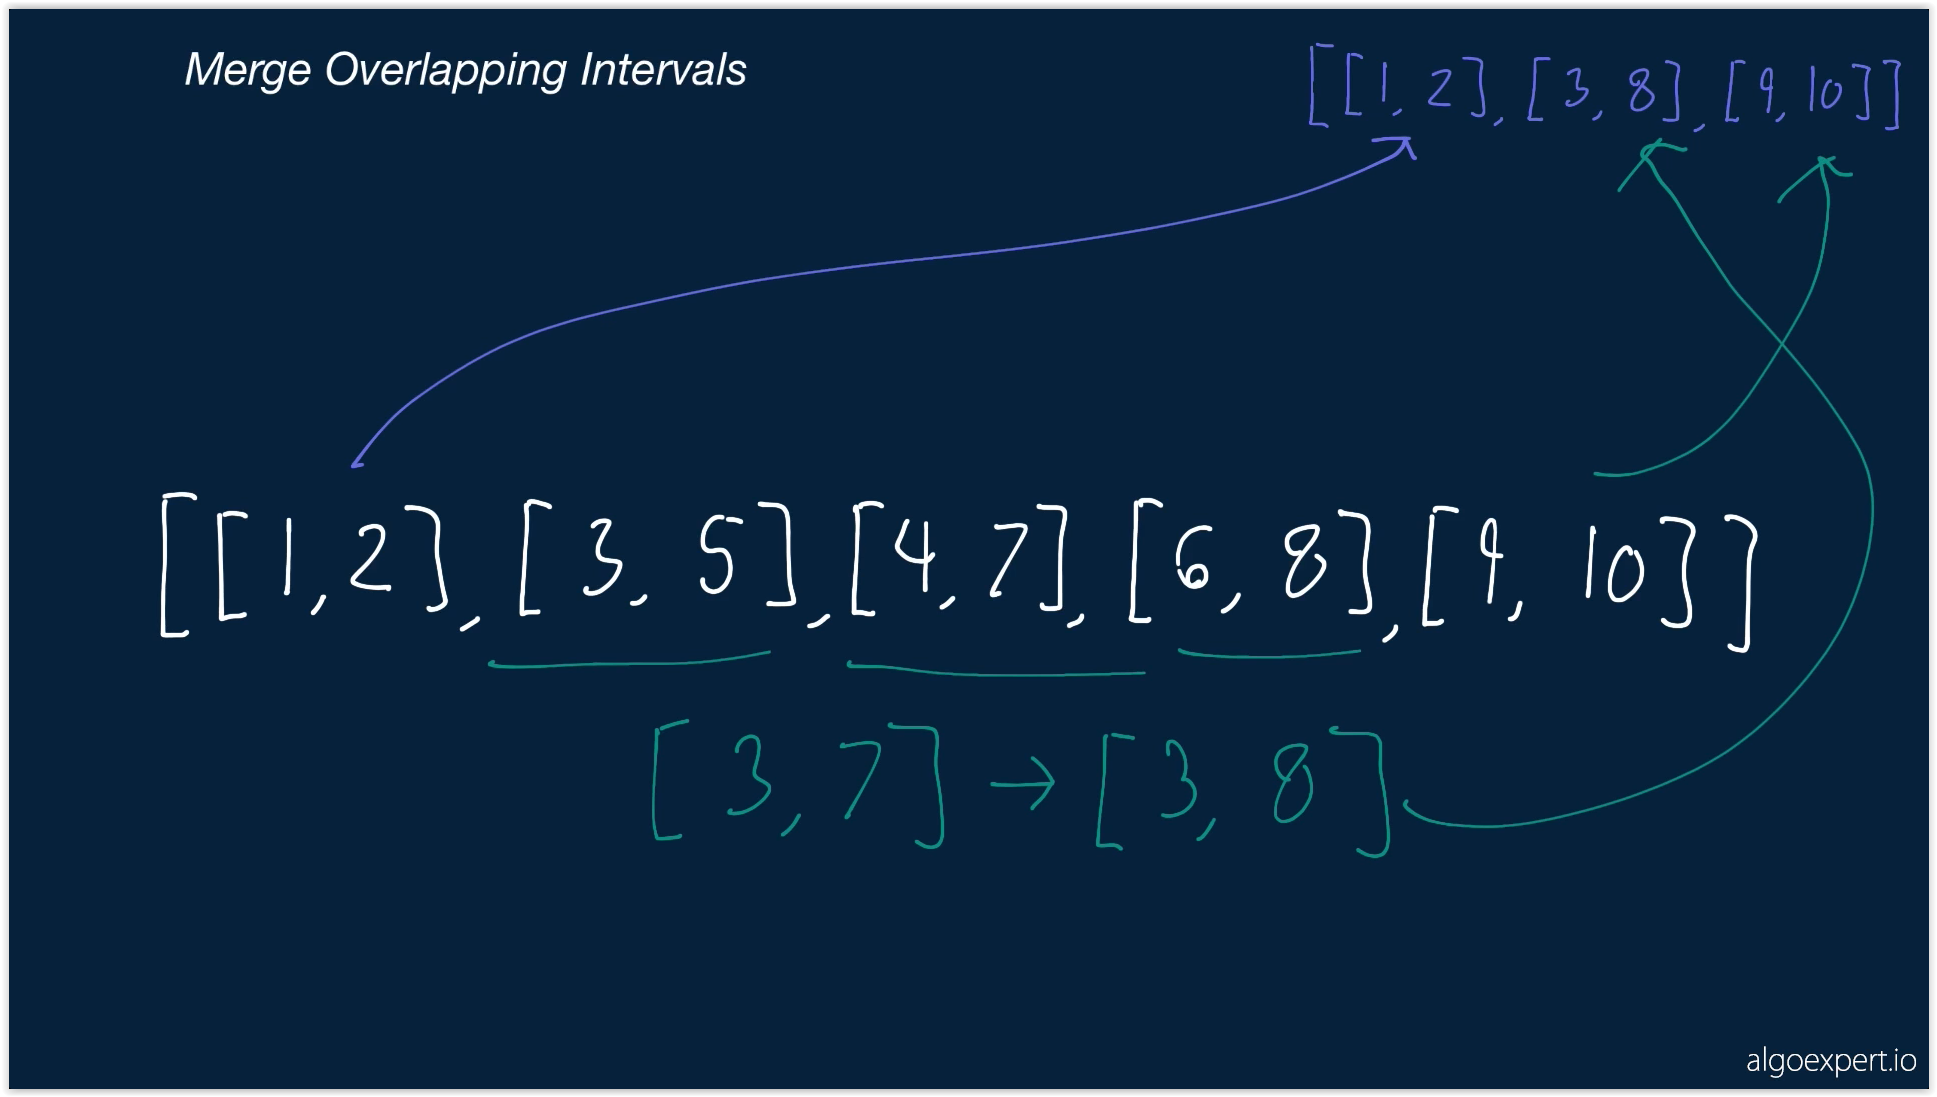 Merge Overlapping Intervals
[[1, 2], [3, 8], [9, 10]]
[[1, 2], [3, 5], [4, 7], [6, 8], [9, 10]]
[3, 7] → [3, 8]
algoexpert.io